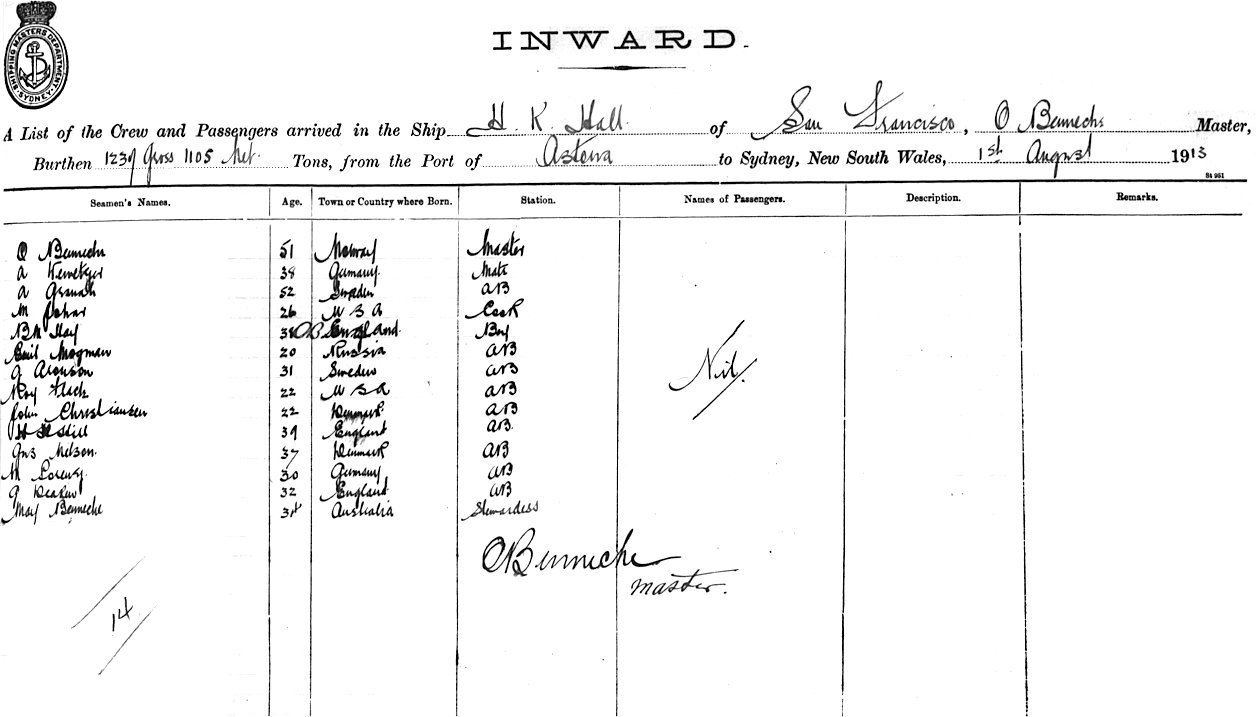 SHIPPING MASTERS DEPARTMENT
SYDNEY
INWARD.
A List of the Crew and Passengers arrived in the Ship H. K Hall of San Francisco, O Benneche Master,
Burthen 1237 Gross 1105 Net. Tons, from the Port of Astoria to Sydney, New South Wales, 1st August 1913
St 951
Seamen's Names. Age. Town or Country where Born. Station. Names of Passengers. Description. Remarks.
O Benneche 51 Norway Master
A 38 Germany Mate
A Granath 52 Sweden AB
M 26 U S A Cook
38 England Boy
Emil 20 Russia AB
G Aronson 31 Sweden AB
Roy 22 U S A AB
John Christiansen 22 Denmark AB
39 England AB
Nil.
Gus Nelson 37 Denmark AB
M Lorenz 30 Germany AB
G 32 England AB
May Benneche 34 Australia Stewardess
O Benneche
Master.
14